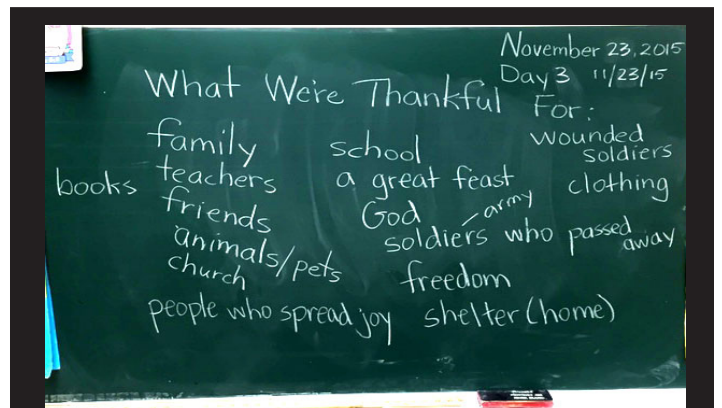 November 23, 2015
Day 3 11/23/15
What We're Thankful For:
family
teachers
friends
animals/pets
church
people who spread joy
books
school
a great feast
God
army
soldiers who passed away
freedom
shelter (home)
wounded
soldiers
clothing